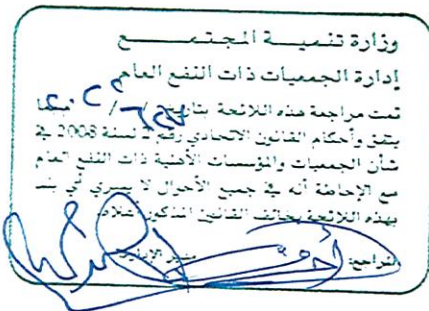 وزارة تنميـــة المجتمـــــع
إدارة الجمعيات ذات النفع العام
تمت مراجعة هذه اللائحة بتاريخ / / بما
يتفق وأحكام القانون الاتحادي رقم 2 لسنة 2008 في
شأن الجمعيات والمؤسسات الأهلية ذات النفع العام
مع الإحاطة أنه في جميع الأحوال لا يسري أي بند
بهذه اللائحة يخالف القانون المذكور أعلاه
المراجع: مدير الإدارة